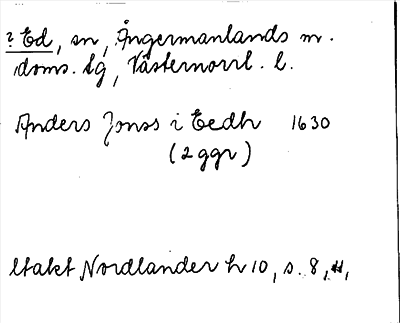 ? Ed, sn, Ångermanlands m.
doms. tg, Västernorrl. l.
Anders Jonss i Eedh 1630
(2 ggr)
Utakt Nordlander h 10, s. 8, 11,